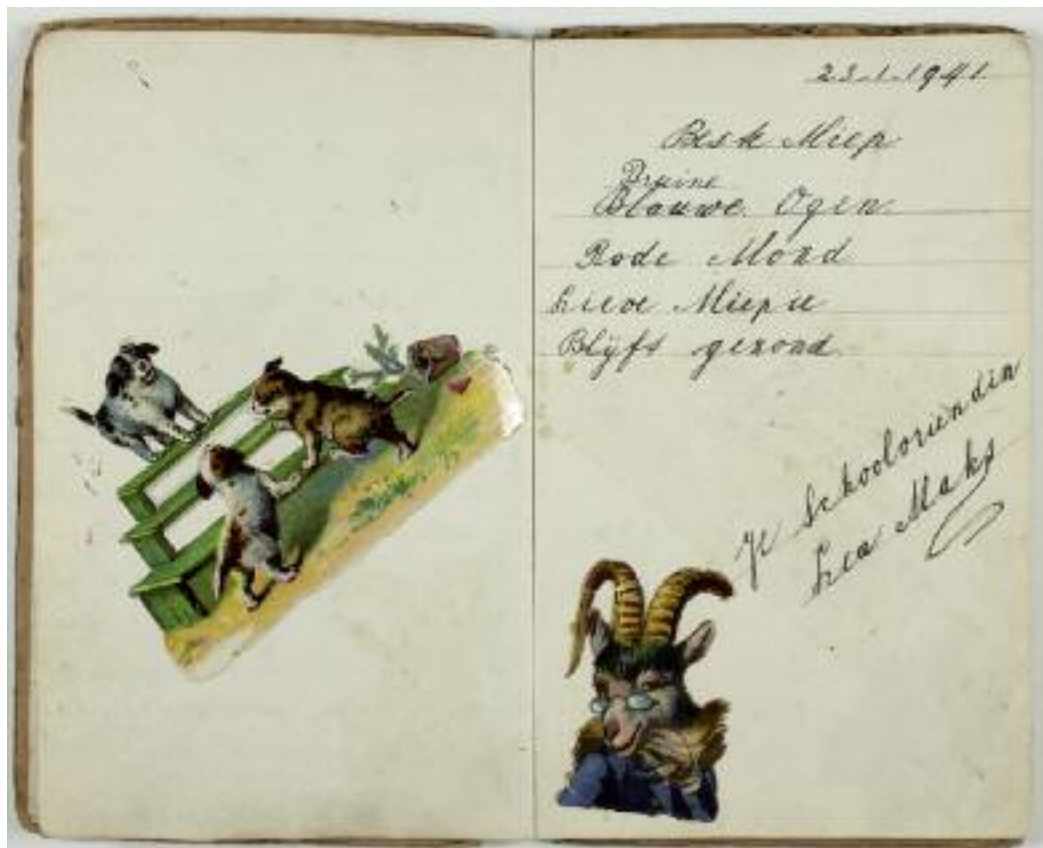 23-1-1941.
Beste Miep
Bruine
Blauwe Ogen.
Rode Mond
Lieve Miepie
Blijft gezond.
Je Schoolvriendin
Lea Maks